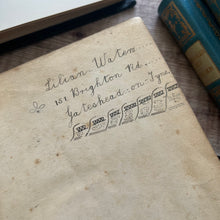 Lilian Waters
151 Brighton Rd.
Gateshead-on-Tyne